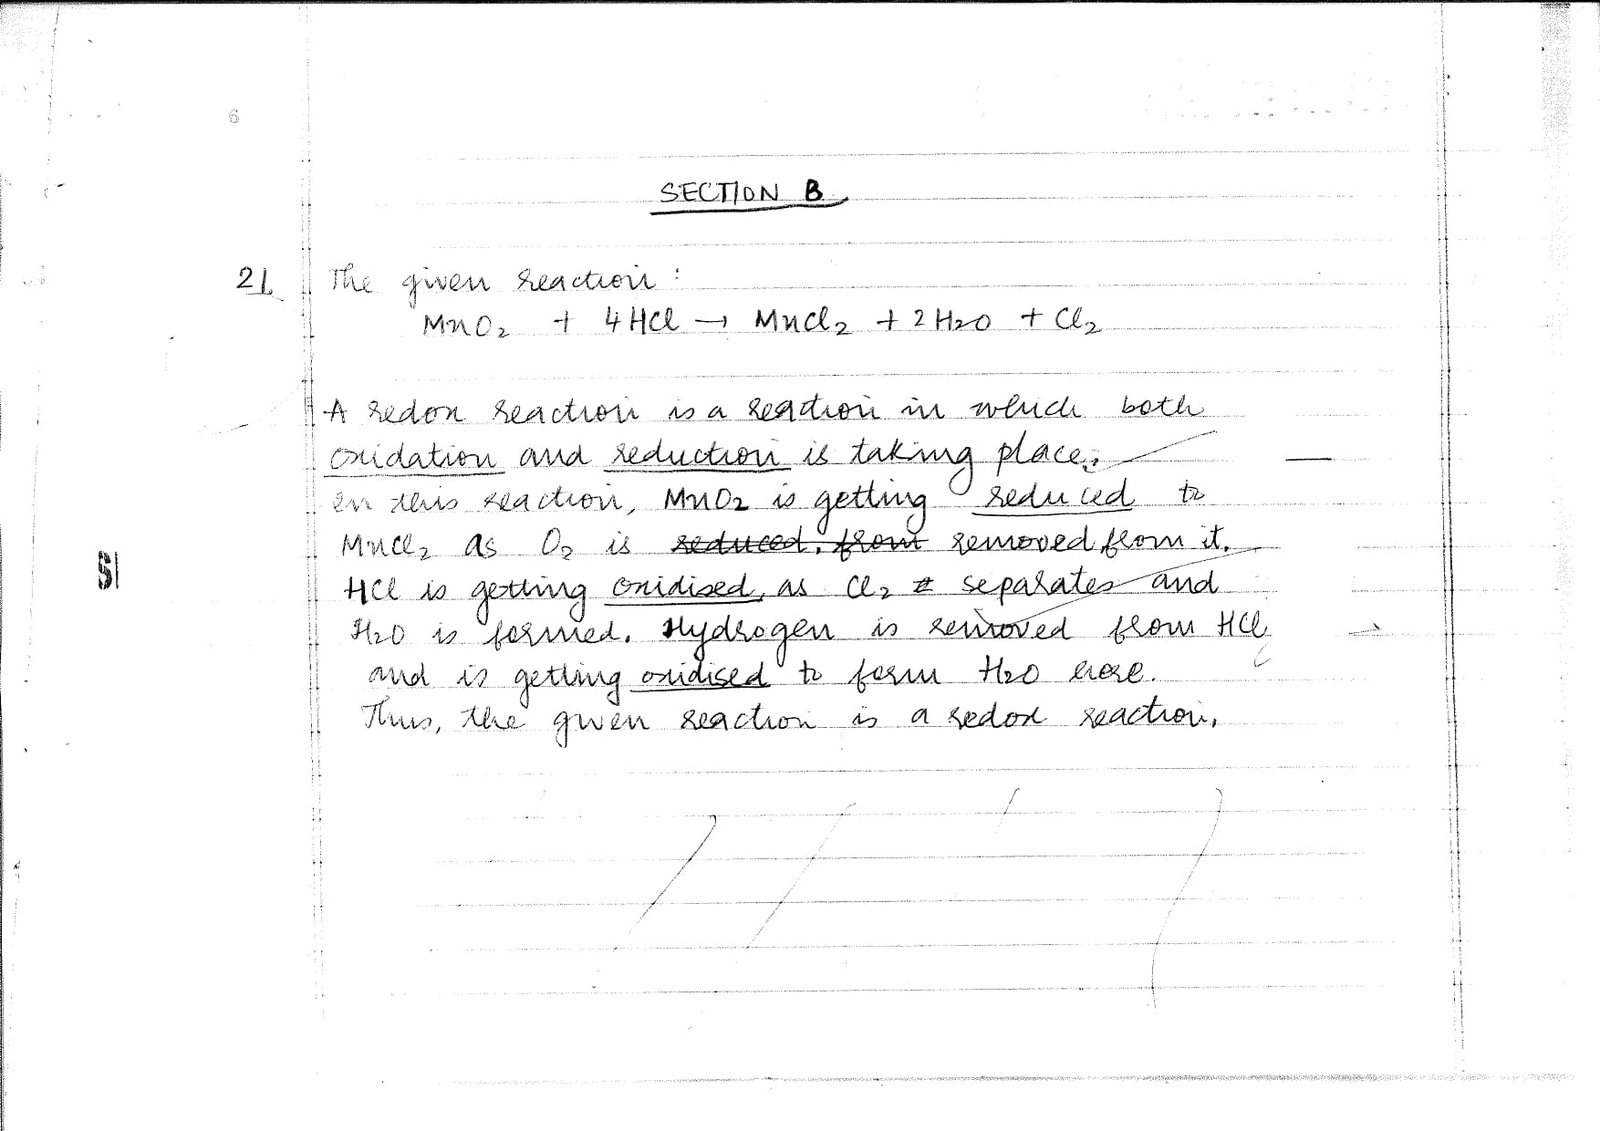 6
SECTION B
21. The given reaction:
MnO₂ + 4HCl → MnCl₂ + 2H₂O + Cl₂
A redox reaction is a reaction in which both
oxidation and reduction is taking place.
In this reaction, MnO₂ is getting reduced to
MnCl₂ as O₂ is reduced. from removed from it.
HCl is getting oxidised, as Cl₂ separates and
H₂O is formed. Hydrogen is removed from HCl
and is getting oxidised to form H₂O here.
Thus, the given reaction is a redox reaction.